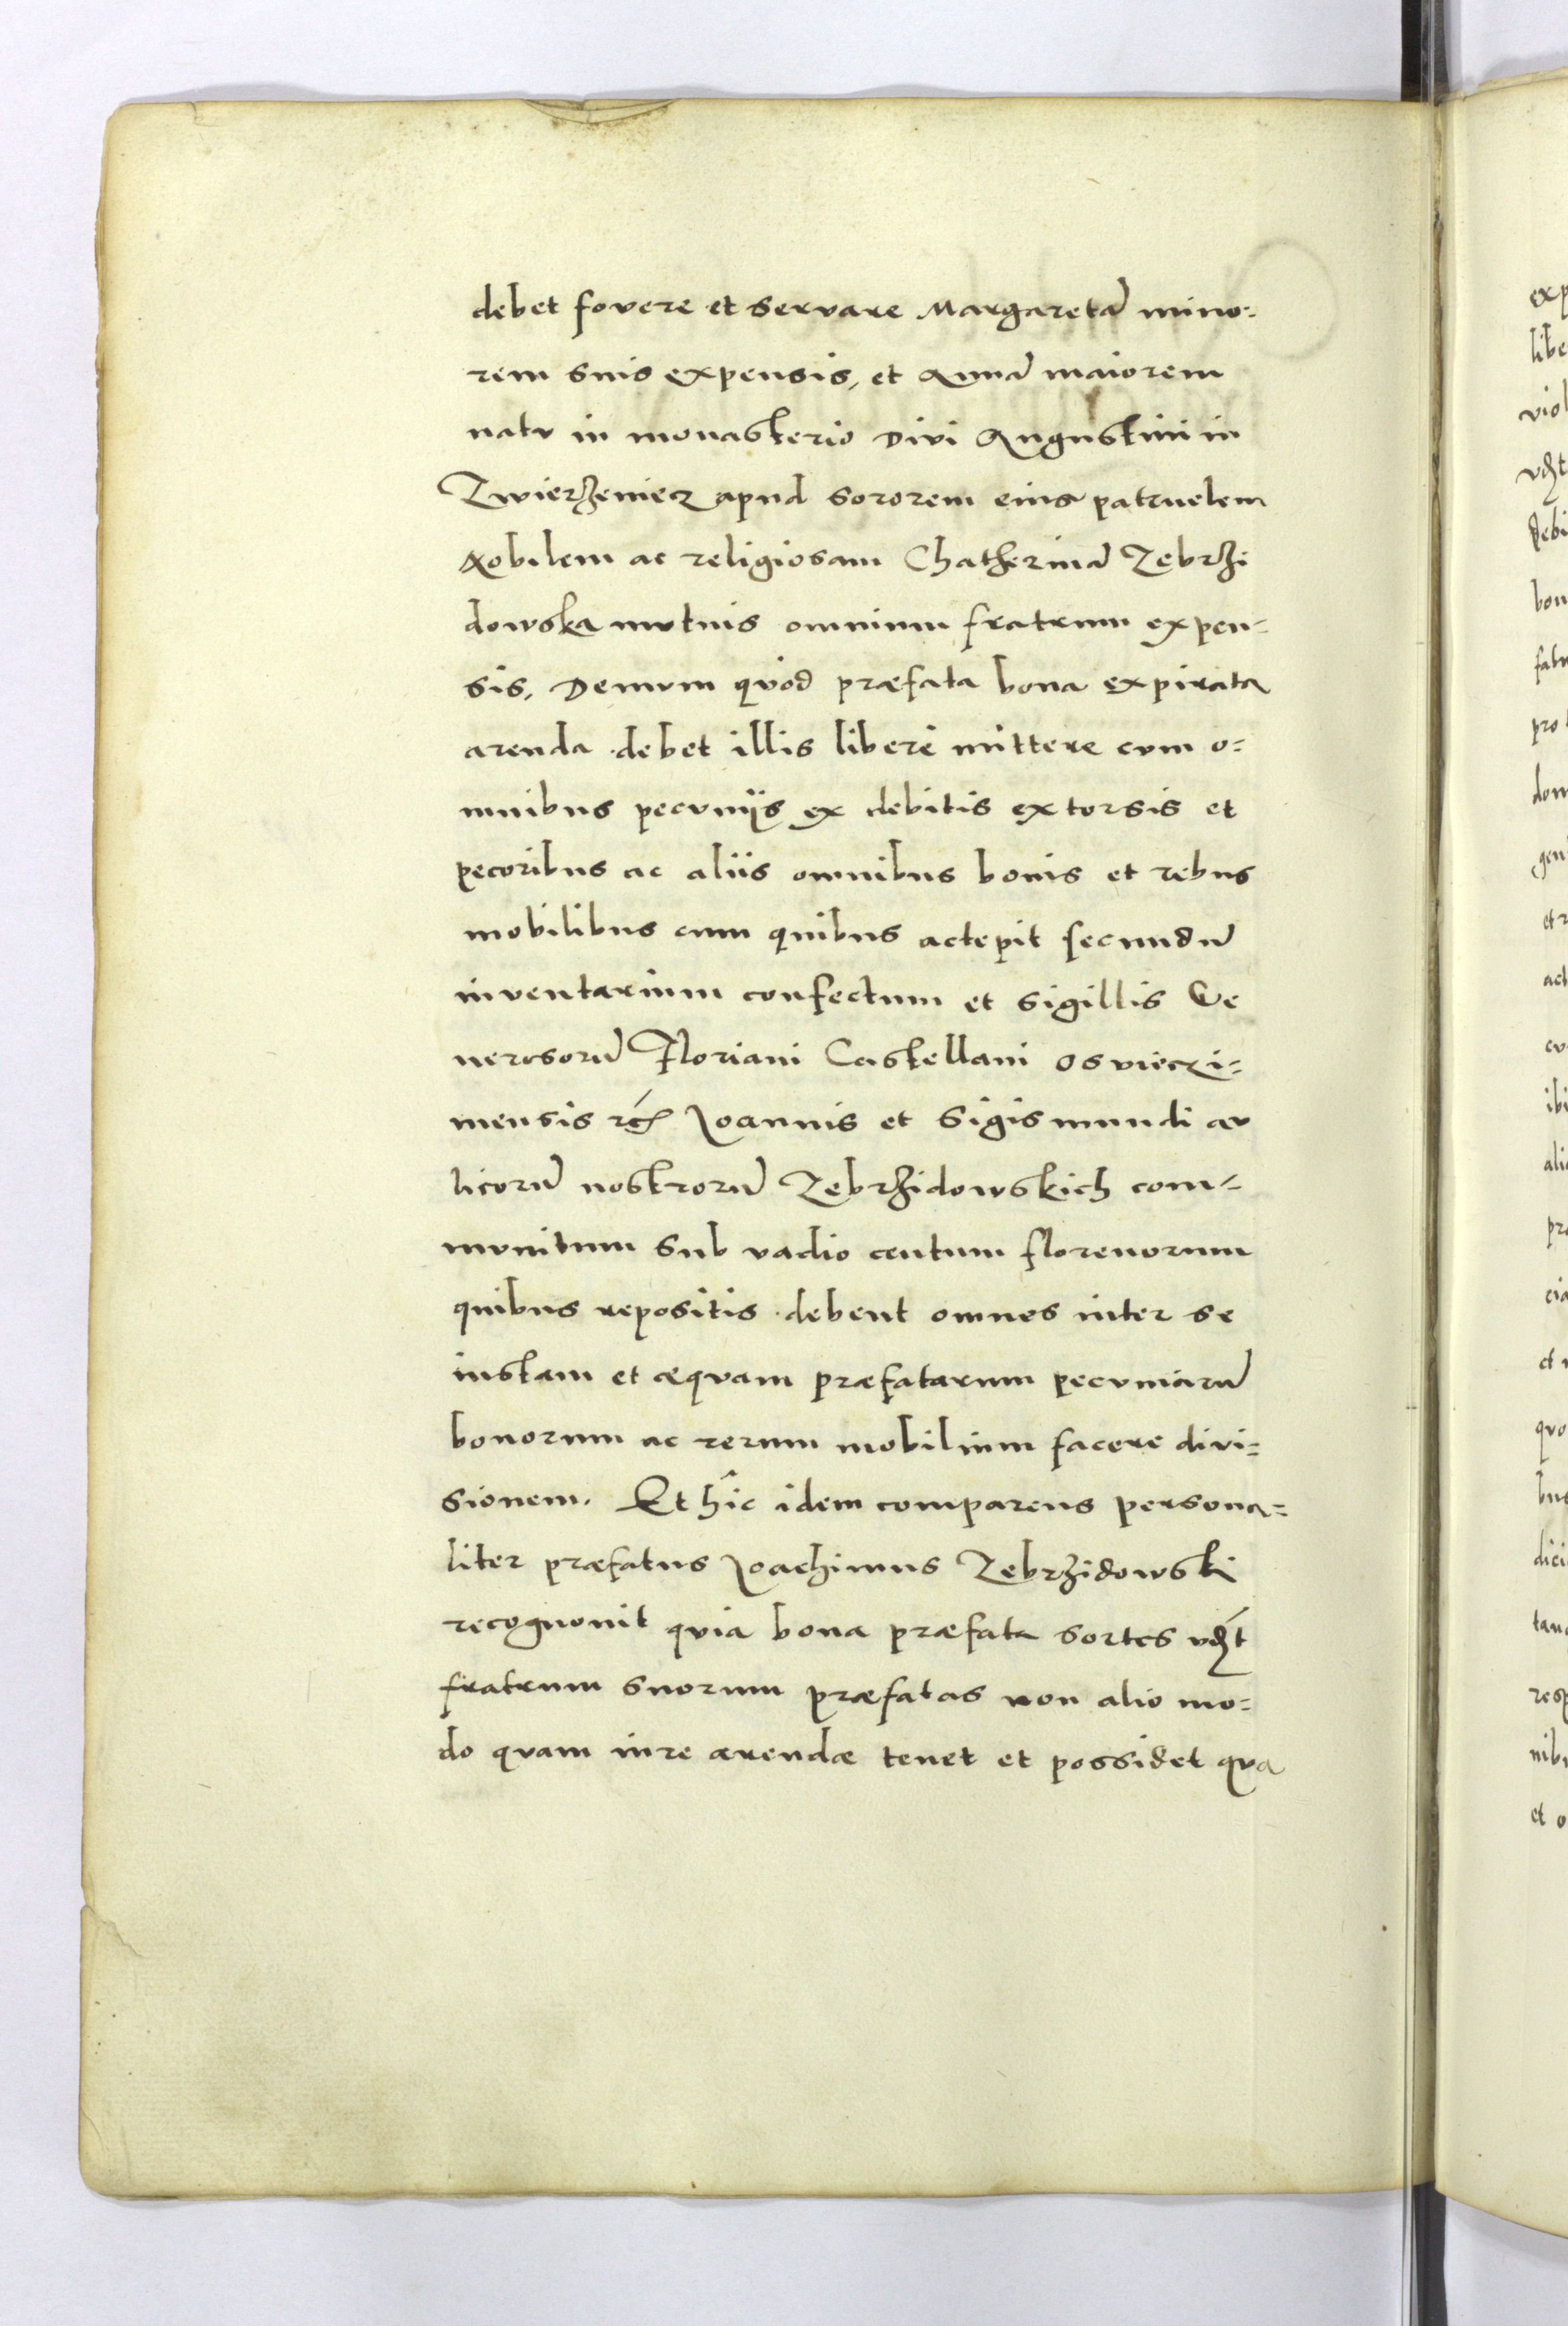 debet fovere et servare Margaretã mino=
rem suis expensis, et Annã maiorem
natv in monasterio Divi Augustini in
Zwierzeniecz apud sororem eius patruelem
Nobilem ac religiosam Chatherinã Zebrzi
dowska mvtuis omnium fratrum expen=
sis. Demvm qvod præfata bona expirata
arenda debet illis liberè mittere cvm o=
mnibus pecvnijs ex debitis extorsis et
pecoribus ac aliis omnibus bonis et rebus
mobilibus cum quibus accepit secundũ
inventarium confectum et sigillis Ge
nerosorũ Floriani Castellani Osvieczi=
mensis Joannis et Sigismundi av
licorũ nostrorũ Zebrzidowskich com=
mvnitum sub vadio centum florenorum
quibus repositis debent omnes inter se
iustam et æqvam præfatarum pecvniarũ
bonorum ac rerum mobilium facere divi=
sionem. Et hîc idem comparens persona=
liter præfatus Joachimus Zebrzidowski
recognouit qvia bona præfata sortes vdĺt
fratrum suorum præfatas non alio mo=
do qvam iure arendæ tenet et possidet qva
exp
libe
viol
vdĺt
debi
bon
pro
dom
gen
et r
act
cv
ibi
ali
pra
cia
et
qvo
bus
dici
tan
resp
nibu
et o